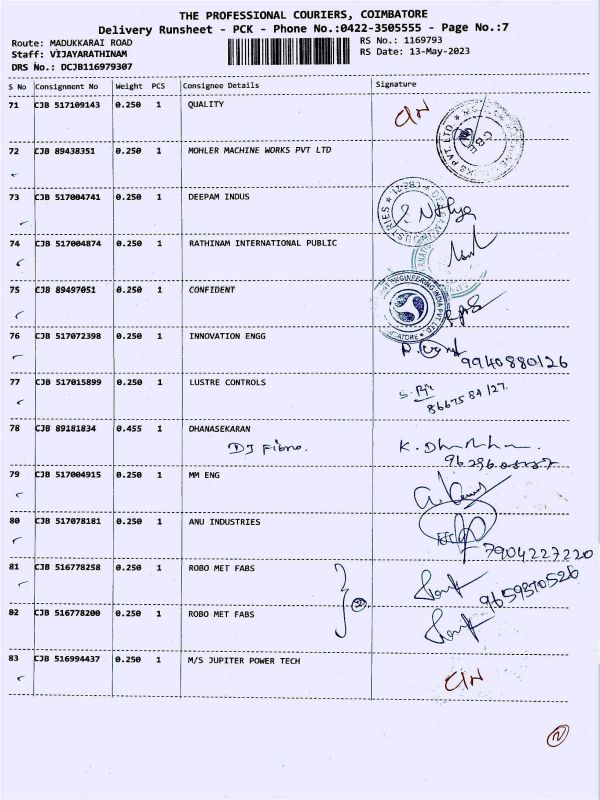 THE PROFESSIONAL COURIERS, COIMBATORE
Delivery Runsheet - PCK - Phone No.:0422-3505555 - Page No.:7
Route: MADUKKARAI ROAD RS No.: 1169793
Staff: VIJAYARATHINAM RS Date: 13-May-2023
DRS No.: DCJB116979307
S No Consignment No Weight PCS Consignee Details Signature
71 CJB 517109143 0.250 1 QUALITY
72 CJB 89438351 0.250 1 MOHLER MACHINE WORKS PVT LTD
73 CJB 517004741 0.250 1 DEEPAM INDUS
74 CJB 517004874 0.250 1 RATHINAM INTERNATIONAL PUBLIC
75 CJB 89497051 0.250 1 CONFIDENT
76 CJB 517072398 0.250 1 INNOVATION ENGG
9940880126
77 CJB 517015899 0.250 1 LUSTRE CONTROLS
78 CJB 89181834 0.455 1 DHANASEKARAN
79 CJB 517004915 0.250 1 MM ENG
80 CJB 517078181 0.250 1 ANU INDUSTRIES
7904227220
81 CJB 516778258 0.250 1 ROBO MET FABS
82 CJB 516778200 0.250 1 ROBO MET FABS
83 CJB 516994437 0.250 1 M/S JUPITER POWER TECH